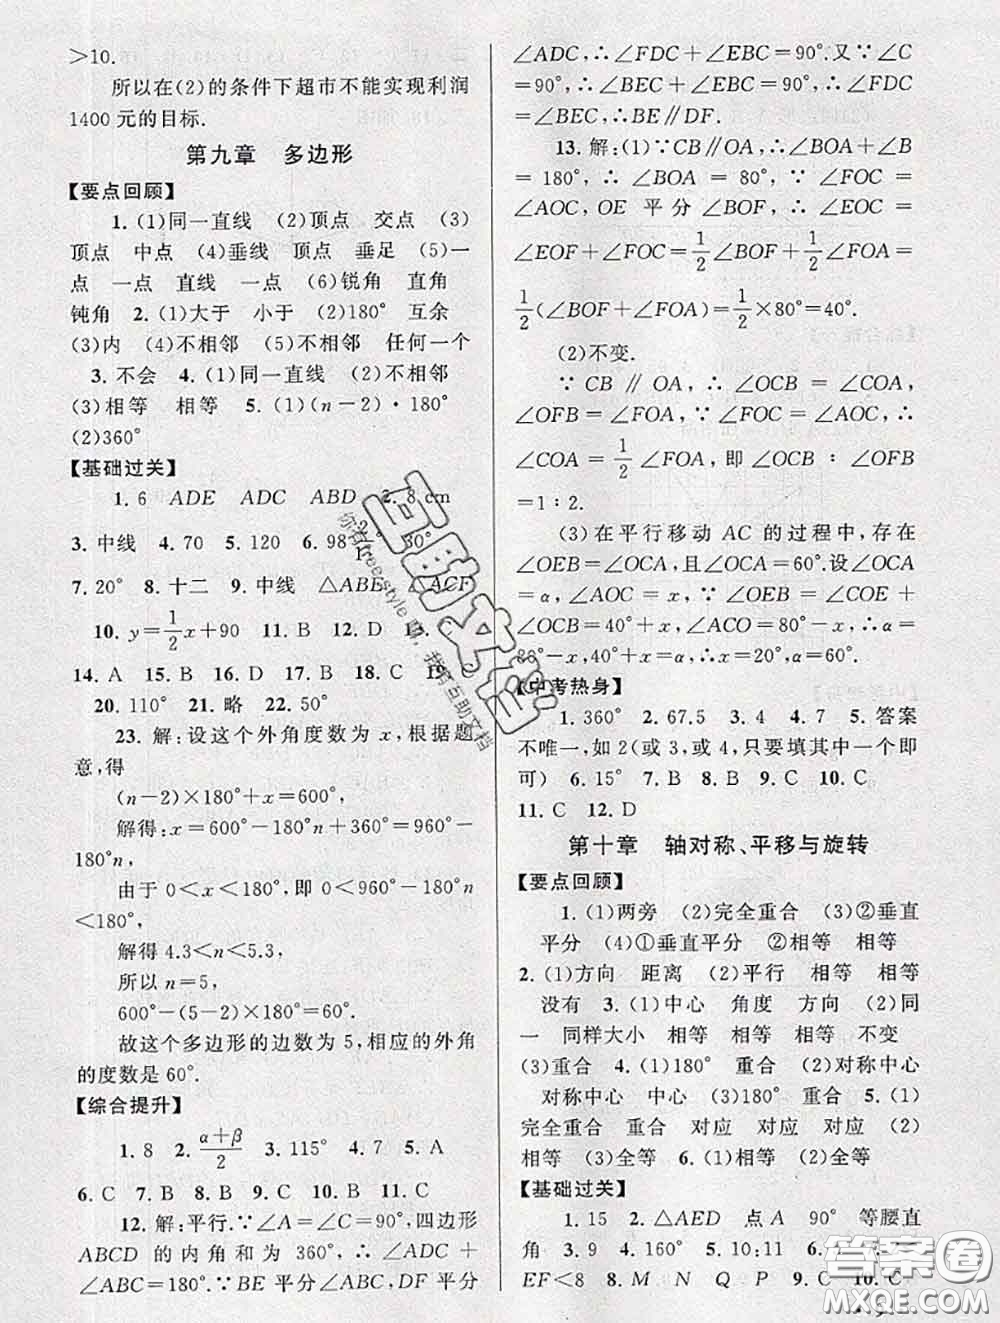 >10.
所以在(2)的条件下超市不能实现利润
1400元的目标.
第九章 多边形
【要点回顾】
1. (1)同一直线 (2)顶点 交点 (3)
顶点 中点 (4)垂线 顶点 垂足 (5)一
点 一点 直线 一点 (6)锐角 直角
钝角 2. (1)大于 小于 (2)180° 互余
(3)内 (4)不相邻 (5)不相邻 任何一个
3. 不会 4. (1)同一直线 (2)不相邻
(3)相等 相等 5. (1)(n-2)·180°
(2)360°
【基础过关】
1. 6 ADE ADC ABD 2. 8 cm
3. 中线 4. 70 5. 120 6. 98°
7. 20° 8. 十二 9. 中线 △ABE △ACF
10. y=1/2x+90 11. B 12. D 13.
14. A 15. B 16. D 17. B 18. C 19.
20. 110° 21. 略 22. 50°
23. 解:设这个外角度数为x,根据题
意,得
(n-2)×180°+x=600°,
解得:x=600°-180°n+360°=960°-
180°n,
由于0<x<180°,即0<960°-180°n
<180°,
解得4.3<n<5.3,
所以n=5,
600°-(5-2)×180°=60°.
故这个多边形的边数为5,相应的外角
的度数是60°.
【综合提升】
1. 8 2. (α+β)/2 3. 115° 4. 7 5. A
6. C 7. B 8. B 9. C 10. B 11. C
12. 解:平行.∵∠A=∠C=90°,四边形
ABCD的内角和为360°,∴∠ADC+
∠ABC=180°.∵BE平分∠ABC,DF平分
∠ADC,∴∠FDC+∠EBC=90°.又∵∠C
=90°,∴∠BEC+∠EBC=90°,∴∠FDC
=∠BEC,∴BE∥DF.
13. 解:(1)∵CB∥OA,∴∠BOA+∠B
=180°,∴∠BOA=80°,∵∠FOC=
∠AOC,OE平分∠BOF,∴∠EOC=
∠EOF+∠FOC=1/2∠BOF+1/2∠FOA=
1/2(∠BOF+∠FOA)=1/2×80°=40°.
(2)不变.
∵CB∥OA,∴∠OCB=∠COA,
∠OFB=∠FOA,∵∠FOC=∠AOC,∴
∠COA=1/2∠FOA,即∠OCB∶∠OFB
=1∶2.
(3)在平行移动AC的过程中,存在
∠OEB=∠OCA,且∠OCA=60°.设∠OCA
=α,∠AOC=x,∵∠OEB=∠COE+
∠OCB=40°+x,∠ACO=80°-x,∴α=
80°-x,40°+x=α,∴x=20°,α=60°.
【中考热身】
1. 360° 2. 67.5 3. 4 4. 7 5. 答案
不唯一,如2(或3,或4,只要填其中一个即
可) 6. 15° 7. B 8. B 9. C 10. C
11. C 12. D
第十章 轴对称、平移与旋转
【要点回顾】
1. (1)两旁 (2)完全重合 (3)②垂直
平分 (4)①垂直平分 ②相等 相等
2. (1)方向 距离 (2)平行 相等 相等
没有 3. (1)中心 角度 方向 (2)同
一 同样大小 相等 相等 相等 不变
(3)重合 4. (1)180° 重合 (2)对称中心
对称中心 中心 (3)180° 重合 5. (1)
完全重合 重合 对应 对应 对应 (2)
相等 (3)全等 6. (1)相等 (2)全等
【基础过关】
1. 15 2. △AED 点A 90° 等腰直
角 3. 9 4. 160° 5. 10:11 6.
EF<8 8. M N Q P 9. C 10. C
百微文档
你有free style吗，我有互助文档
答案圈
MXQE.COM